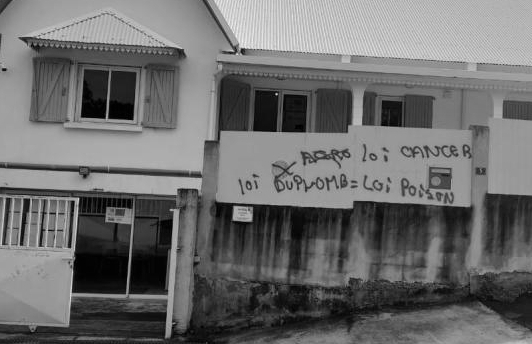 AGRO loi CANCER
loi DUPLOMB = LOi POiSON